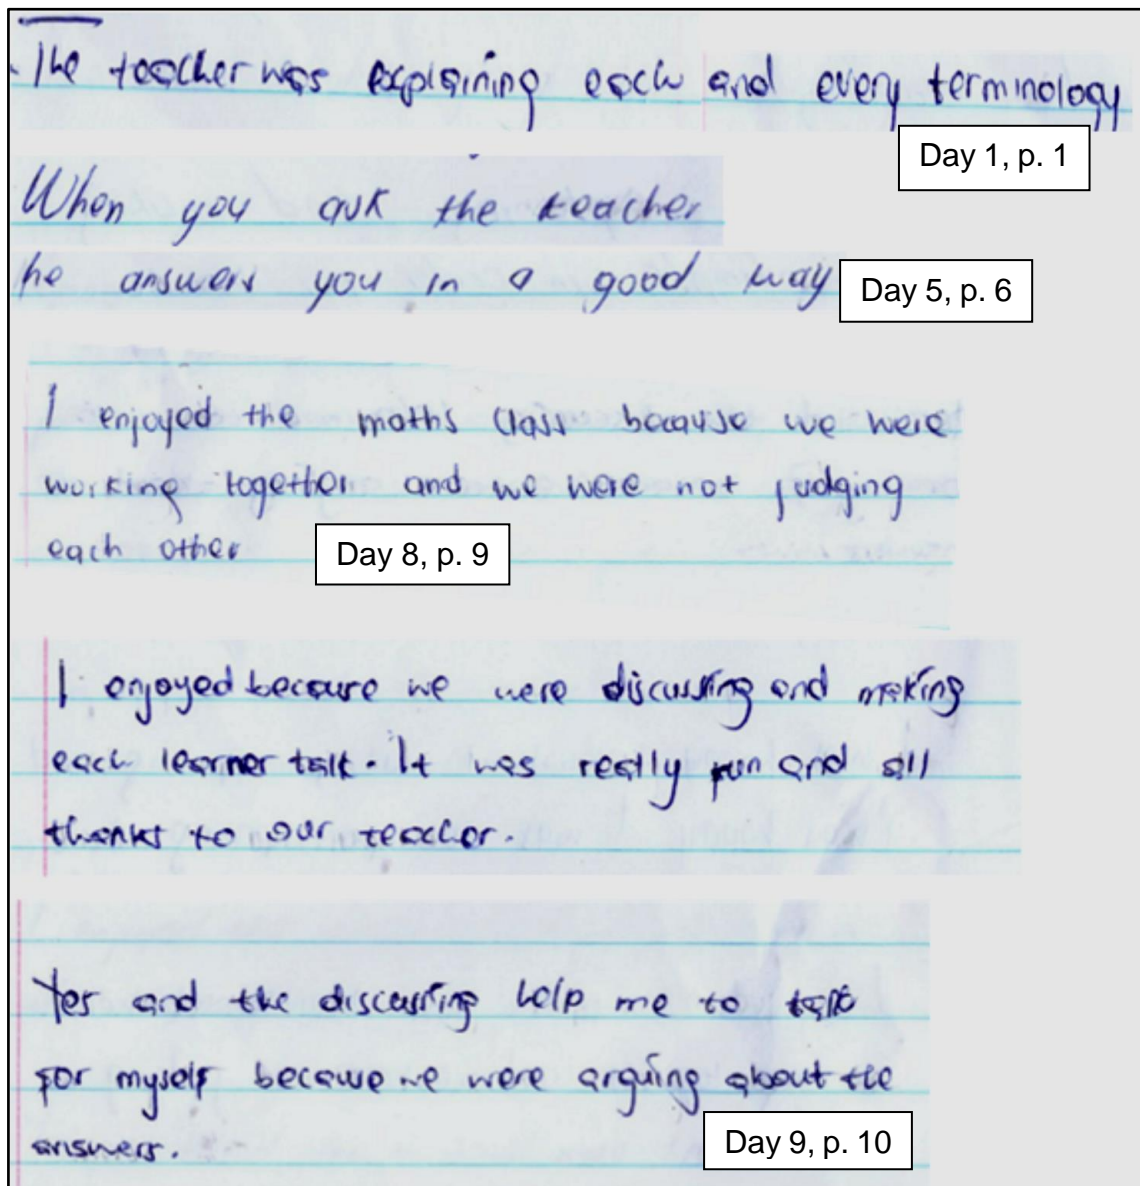 The teacher was explaining each and every terminology
Day 1, p. 1
When you ask the teacher
he answers you in a good way
Day 5, p. 6
I enjoyed the maths class because we were
working together and we were not judging
each other
Day 8, p. 9
I enjoyed because we were discussing and making
each learner talk. It was really fun and all
thanks to our teacher.
Yes and the discussing help me to talk
for myself because we were arguing about the
answers.
Day 9, p. 10